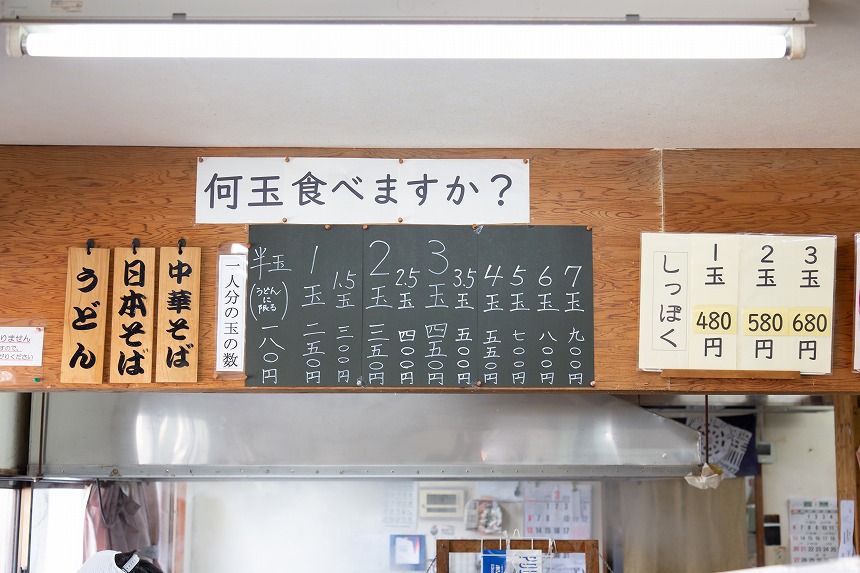 何玉食べますか？
うどん
日本そば
中華そば
一人分の玉の数
半玉（うどんに限る）一八〇円
1玉 二五〇円
1.5玉 三〇〇円
2玉 三五〇円
2.5玉 四〇〇円
3玉 四五〇円
3.5玉 五〇〇円
4玉 五五〇円
5玉 七〇〇円
6玉 八〇〇円
7玉 九〇〇円
しっぽく
1玉 480円
2玉 580円
3玉 680円
りません